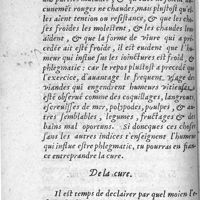 cunemét rouges ne chaudes, mais plustost qu'il-
les aient tention ou resistance, & que les cho-
ses froides les molestent, & les chaudes leur
aidēt, & que la forme de vivre qui a pre-
cedé ait esté froide, il est eudent que l'hu-
meur qui influe sus les ioinctures est froid, &
phlegmatic: car le repos plustost a precedé que
l'exercice, d'auantage le frequent vsage des
viandes qui engendrent humeurs visteuses
est obserué comme des coquillages, langrouts,
escreuisses de mer, polypodes, poulpes, & au-
tres semblables, legumes, fructages & des
bains mal oportuns. Si doncques ces choses
sans les autres indices t'enseignent l'humeur
qui influe estre phlegmatic, tu pourras en fian-
ce entreprandre la cure.
De la cure.
Il est temps de declairer par quel moien l'e-